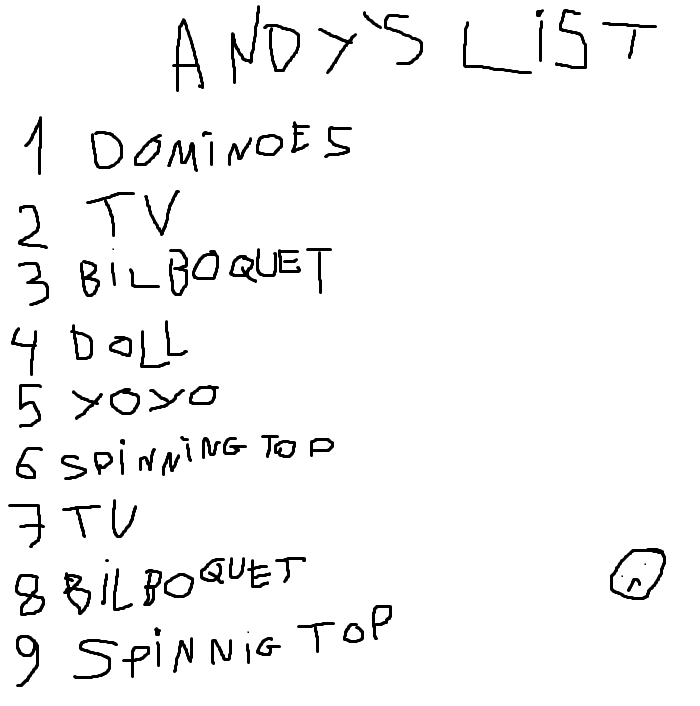 ANDY'S LIST
1 DOMINOES
2 TV
3 BILBOQUET
4 DOLL
5 YOYO
6 SPINNING TOP
7 TV
8 BILBOQUET
9 SPINNIG TOP